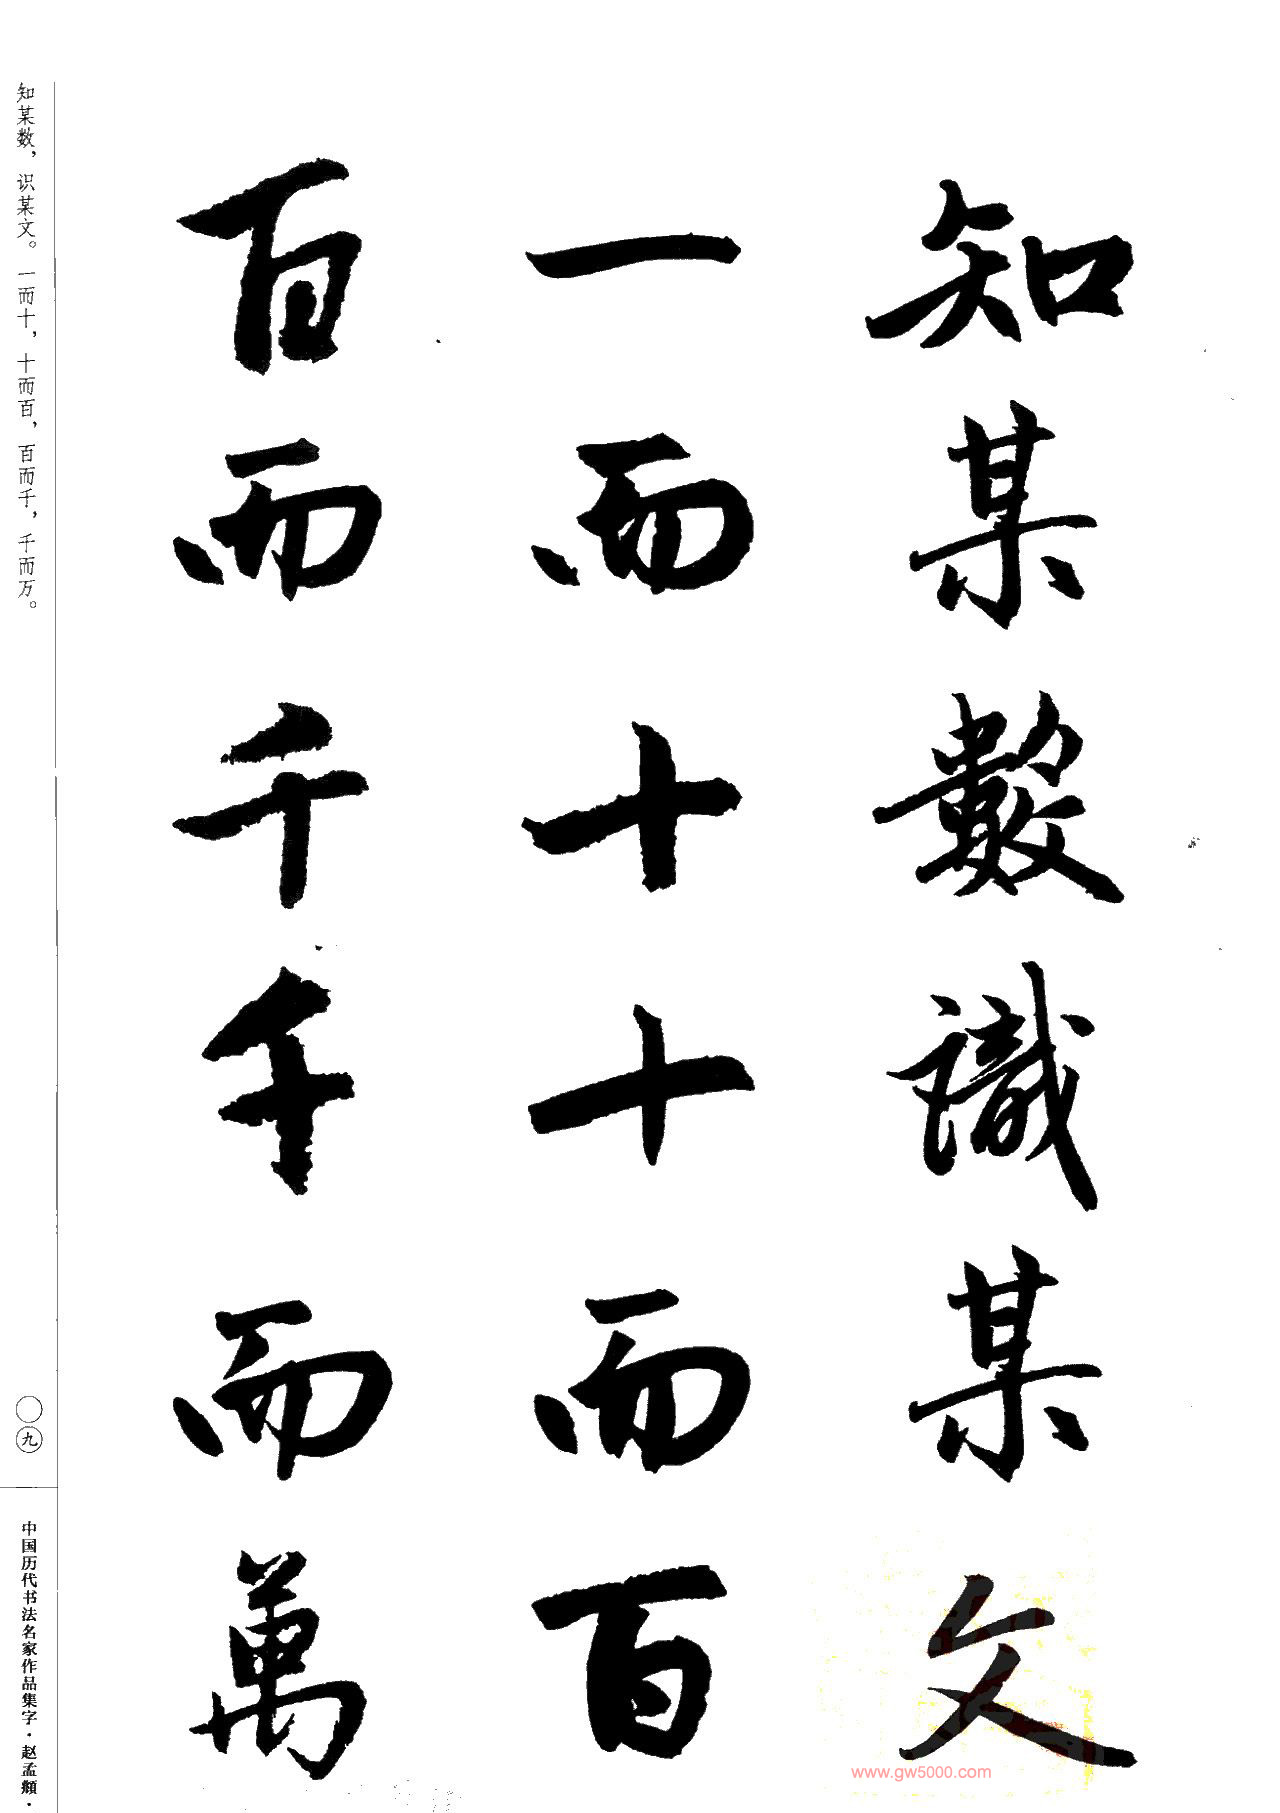 知某數識某文
一而十十而百
百而千千而萬
知某数，识某文。一而十，十而百，百而千，千而万。
〇九
中国历代书法名家作品集字·赵孟頫·
www.gw5000.com